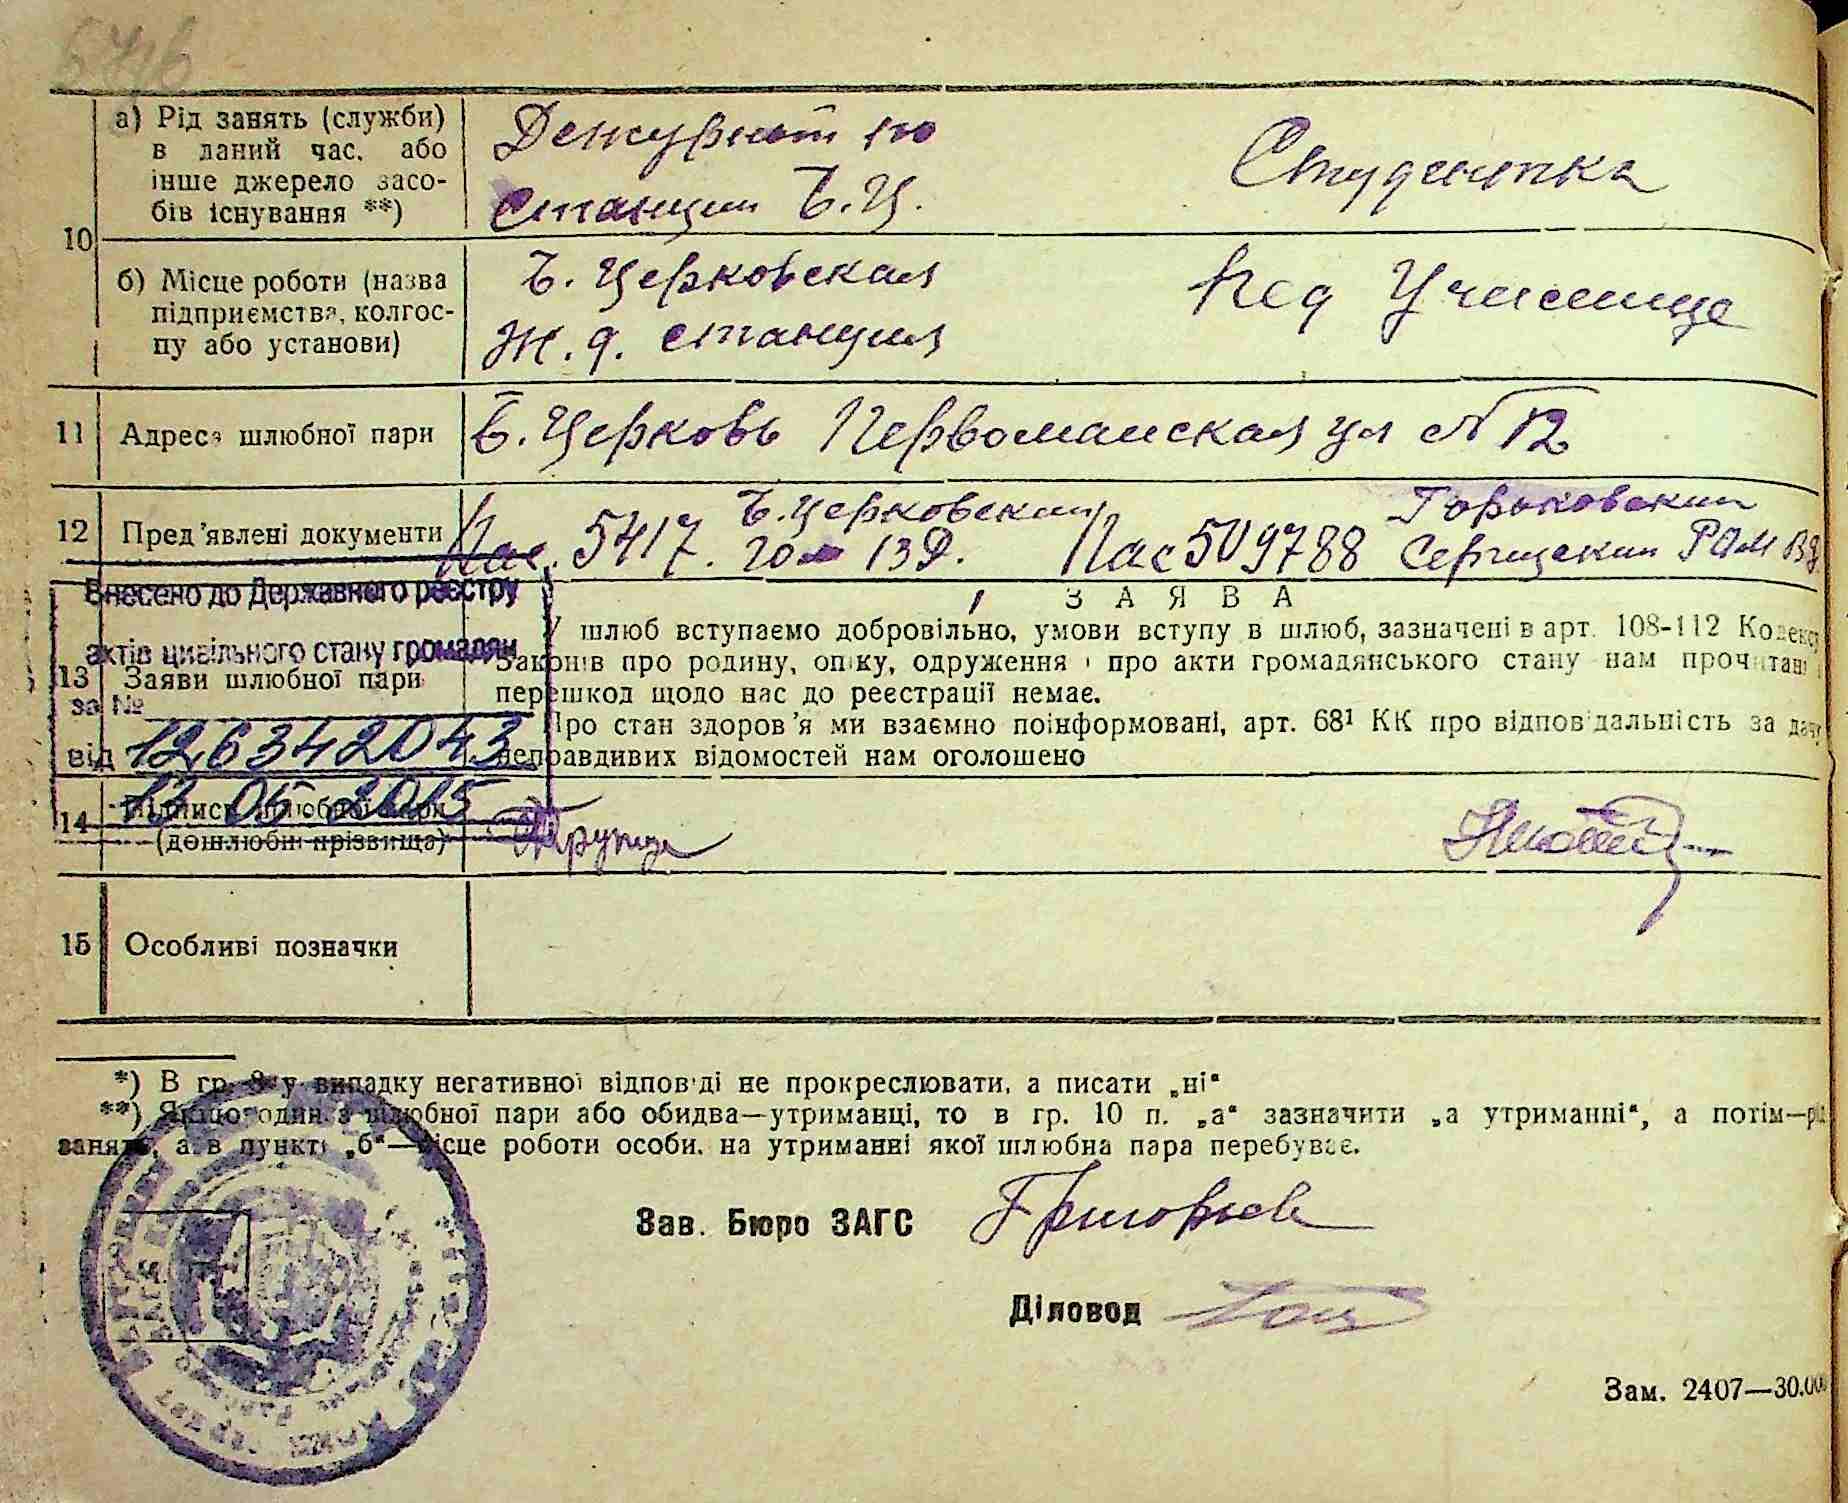 10
а) Рід занять (служби)
в даний час, або
інше джерело засо-
бів існування **)
Дежурный по
станции Б.Ц.
Студентка
б) Місце роботи (назва
підприємства, колгос-
пу або установи)
Б. Церковская
Ж. д. станция
Пед Училище
11
Адреса шлюбної пари
Б. Церковь Первомайская ул № 12
12
Пред'явлені документи
Пас. 5417. Б. Церковским
Пас 509788 Горьковским
РОМ
Внесено до Державного реєстру
актів цивільного стану громадян
за №
126342043
від
05 2015
13
Заяви шлюбної пари
ЗАЯВА
У шлюб вступаємо добровільно, умови вступу в шлюб, зазначені в арт. 108-112 Кодексу
Законів про родину, опіку, одруження і про акти громадянського стану нам прочитані і
перешкод щодо нас до реєстрації немає.
Про стан здоров'я ми взаємно поінформовані, арт. 68¹ КК про відповідальність за дачу
неправдивих відомостей нам оголошено
14
Підписи шлюбної пари
(дошлюбні прізвища)
15
Особливі позначки
*) В гр. 8 у випадку негативної відповіді не прокреслювати, а писати „ні“
**) Якщо один з шлюбної пари або обидва—утриманці, то в гр. 10 п. „а“ зазначити „а утриманні“, а потім—рід
занять, а в пункті „б“—місце роботи особи, на утриманні якої шлюбна пара перебуває.
Зав. Бюро ЗАГС
Григорьев
Діловод
Зам. 2407—30.000